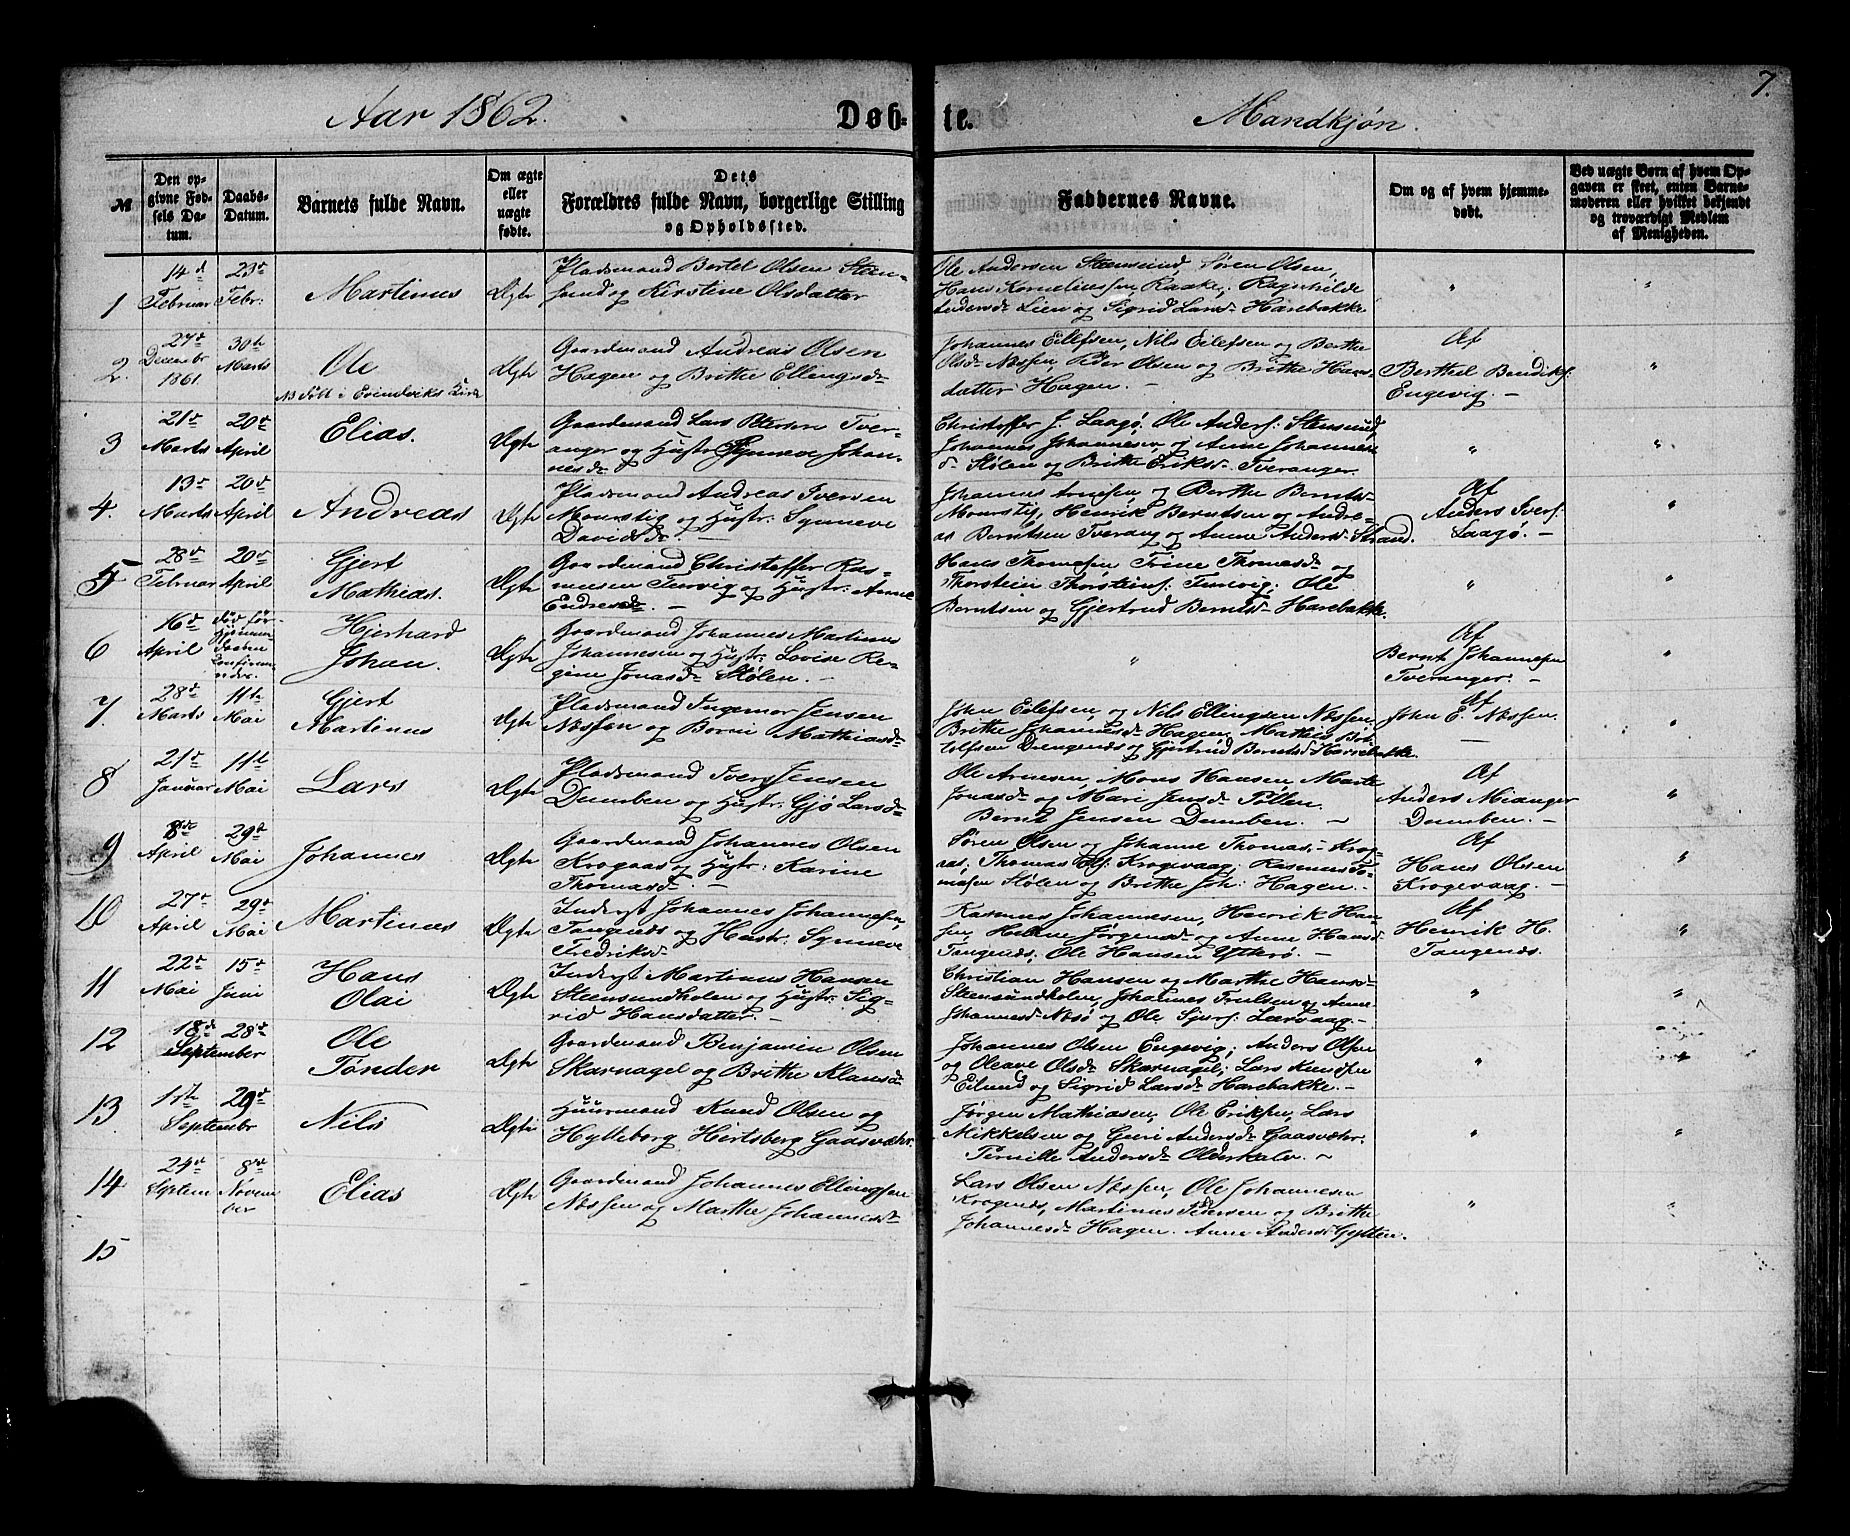 7.
Aar 1862.
Døb-te.
Mandkjøn.
№
Den op-
givne Fød-
sels Da-
tum.
Daabs-
Datum.
Barnets fulde Navn.
Om ægte
eller
uægte
fødte.
Dets
Forældres fulde Navn, borgerlige Stilling
og Opholdssted.
Faddernes Navne.
Om og af hvem hjemme-
døbt.
Ved uægte Børn af hvem Op-
gaven er skeet, enten Barne-
moderen eller hvilket bekjendt
og troværdigt Medlem
af Menigheden.
1
14d
Februar
23d
Febr:
Martinus
Ægte
Pladsmand Bertel Olsen Sten-
sund og Kirstine Olsdatter
Ole Andersen Steensund, Søren Olsen,
Hans Korneliussen, Raake, Ragnhilde
Andersd. Lien og Sigrid Larsd. Harebakke
"
"
2.
27d
Decembr
1861.
30te
Marts
Ole
NB døbt i Evindviks Kirke
Ægte
Gaardmand Andreas Olsen
Hagen og Brithe Ellingsd.
Johannes Eilefsen, Nils Eilefsen og Berthe
Olsd. Nössen, Peder Olsen og Brithe Hans-
datter Hagen. —
Af
Berthel Bendiks:
Engevig. —
"
3
21d
Marts
20d
April
Elias.
Ægte
Gaardmand Lars Petersen Tver-
anger og Hustr: Synneve Johan-
nesd.
Christoffer J. Laagø, Ole Anders: Stensund,
Johannes Johannesen og Anne Johannes-
d. Stølen og Brithe Eriksd. Tveranger.
"
"
4.
13d
Marts
20d
April
Andreas
Ægte
Pladsmand Andreas Iversen
Mourstig og Hustr: Synneve
Davidsd. —
Johannes Arnesen og Berthe Berntsd.
Mourstig, Henrik Berntsen og Andre-
as Berntsen Tverang og Anne Andersd. Strand.
Af
Anders Ivers:
Laagø. —
"
5
28d
Februar
20d
April
Gjert
Mathias.
Ægte
Gaardmand Christoffer Ras-
musen Tenvig og Hustr: Anne
Endresd. —
Hans Thomesen Trine Thomasd. og
Thorstein Thorsteins: Tenvig; Ole
Berntsen og Gjertrud Berntsd. Harebakke.
"
"
6
16d
April
død før
Hjerhard
Johan.
Ægte
Gaardmand Johannes Martinus
Johannesen og Hustr: Lovise Re-
gine Jonasd. Stølen. —
"
Af
Bernt Johannesen
Tveranger. —
"
7.
28d
Marts
11te
Mai
Gjert
Martinus
Ægte
Pladsmand Ingemor Jensen
Nössen og Borni Mathiasd.
John Eilefsen og Nils Ellingsen Nössen,
Brithe Johannesd. Hagen, Mathis Bot-
tolfsen Drengenes og Gjertrud Berntsd. Harrebakke.
Af
John E. Nössen.
—
"
8
21d
Januar
11te
Mai
Lars
Ægte
Pladsmand Iver Jensen
Dumben og Hustr: Gjø Larsd.
Ole Arnesen, Mons Hansen Marte
Jonasd. og Mari Jensd. Tøllen.
Bernt Jensen Dumben. —
Af
Anders Mianger
Dumben. —
"
9
8de
April
29d
Mai
Johannes
Ægte
Gaardmand Johannes Olsen
Krogaas og Hustr: Karine
Thomasd. —
Søren Olsen og Johanne Thomasd. Krog-
aas, Thomas Krogevaag; Rasmus To-
masen Stølen og Brithe Joh: Hagen. —
Af
Hans Olsen
Krogevaag. —
"
10
27d
April
29d
Mai
Martinus
Ægte
Inderst Johannes Johannesen,
Tangenes og Hustr: Synneve
Fredriksd.
Rasmus Johannesen, Henrik Han-
sen, Helene Jørgensd. og Anne Hansd.
Tangenes, Ole Hansen Ytterø. —
Af
Henrik H.
Tangenes.
"
11
22d
Mai
15d
Juni
Hans
Olai
Ægte
Inderst Martinus Hansen
Steensundholen og Hustr: Sig-
rid Hansdatter. —
Christian Hansen og Marthe Hansd.
Steensundholen, Johannes Trulsen og Anne
Johannesd. Næsø og Ole Sjurs: Lærvaag. —
"
"
12
18d
28d
September
Ole
Tønder
Ægte
Gaardmand Benjamin Olsen
Skarnagel og Brithe Klausd.
Johannes Olsen Engevig; Anders Olsen
og Oleave Olsd. Skarnagel; Lars Knudsen
Eilund og Sigrid Larsd. Harebakke. —
"
"
13
1ste
29d
Septembr
Nils
Ægte
Huusmand Knud Olsen og
Hylleborg Hertsberg Gaasvær.
Jørgen Mathiasen, Ole Eriksen, Lars
Mikkelsen og Guri Andersd. Gaasvær:
Pernille Andersd. Olderkalv. —
"
"
14
24d
Septem
8de
Novem
ber
Elias
Ægte
Gaardmand Johannes Ellingsen
Nössen og Marthe Johannesd.
Lars Olsen Nössen, Ole Johannesen
Krogenes, Martinus Pedersen og Brithe
Johannesd. Hagen. Anne Andersd. Gjelten.
"
"
15